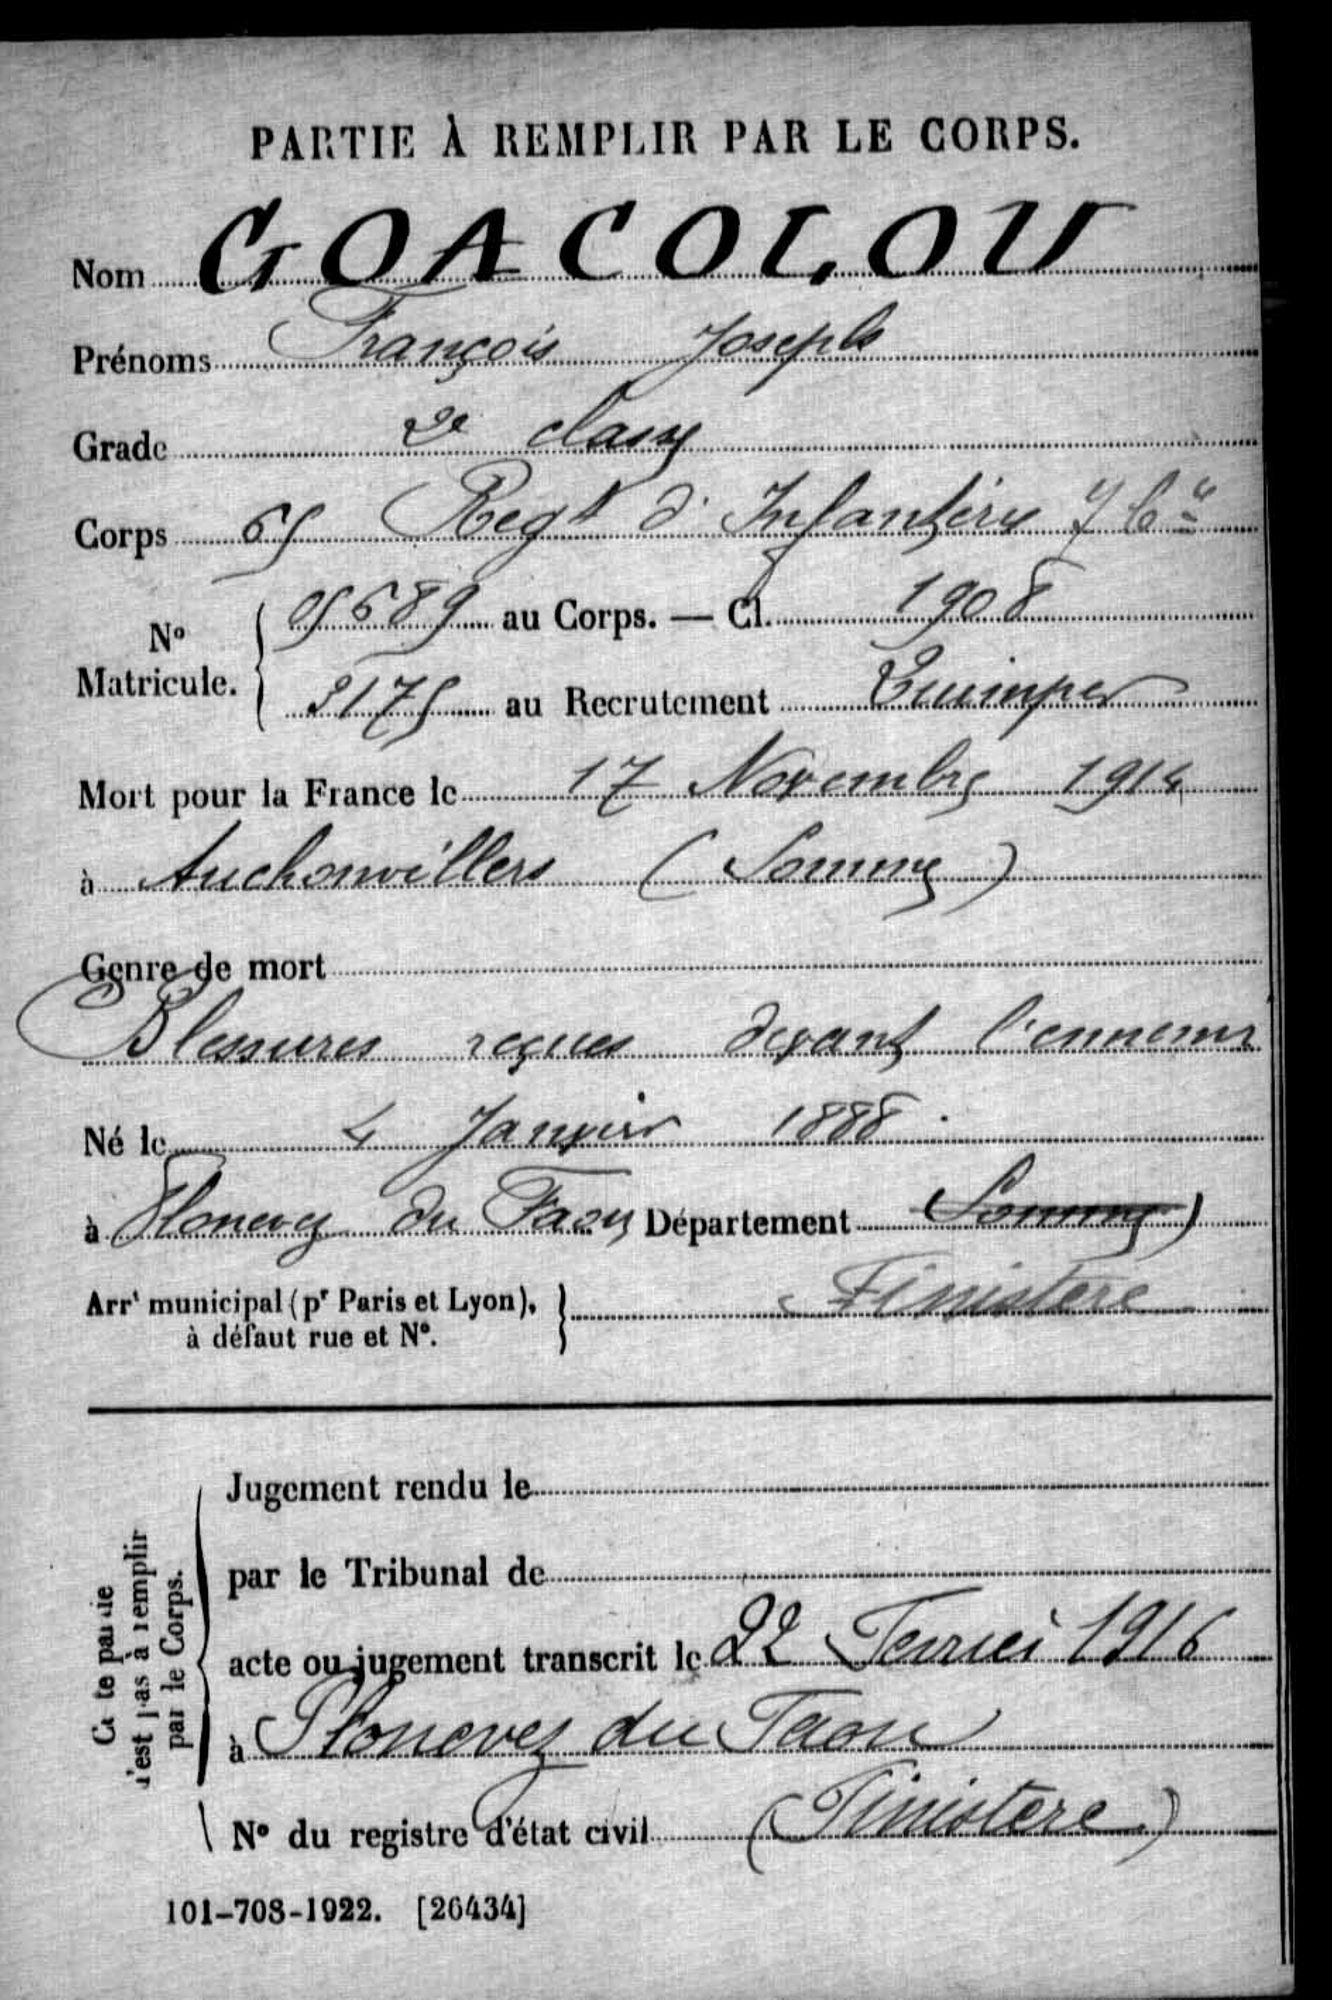 PARTIE À REMPLIR PAR LE CORPS.
Nom GOACOLOU
Prénoms François Joseph
Grade 2e classe
Corps 65 Regt d'Infanterie 7 Cie
No Matricule. 05689 au Corps. — Cl. 1908
3175 au Recrutement Quimper
Mort pour la France le 17 Novembre 1914
à Auchonvillers (Somme)
Genre de mort
Blessures reçues devant l'ennemi
Né le 4 Janvier 1888
à Plonevez du Faou Département Somme)
Arrt municipal (pr Paris et Lyon), à défaut rue et No. Finistere
Cette partie n'est pas à remplir par le Corps.
Jugement rendu le
par le Tribunal de
acte ou jugement transcrit le 22 Fevrier 1916
à Plonevez du Faou
No du registre d'état civil (Finistere)
101-708-1922. [26434]